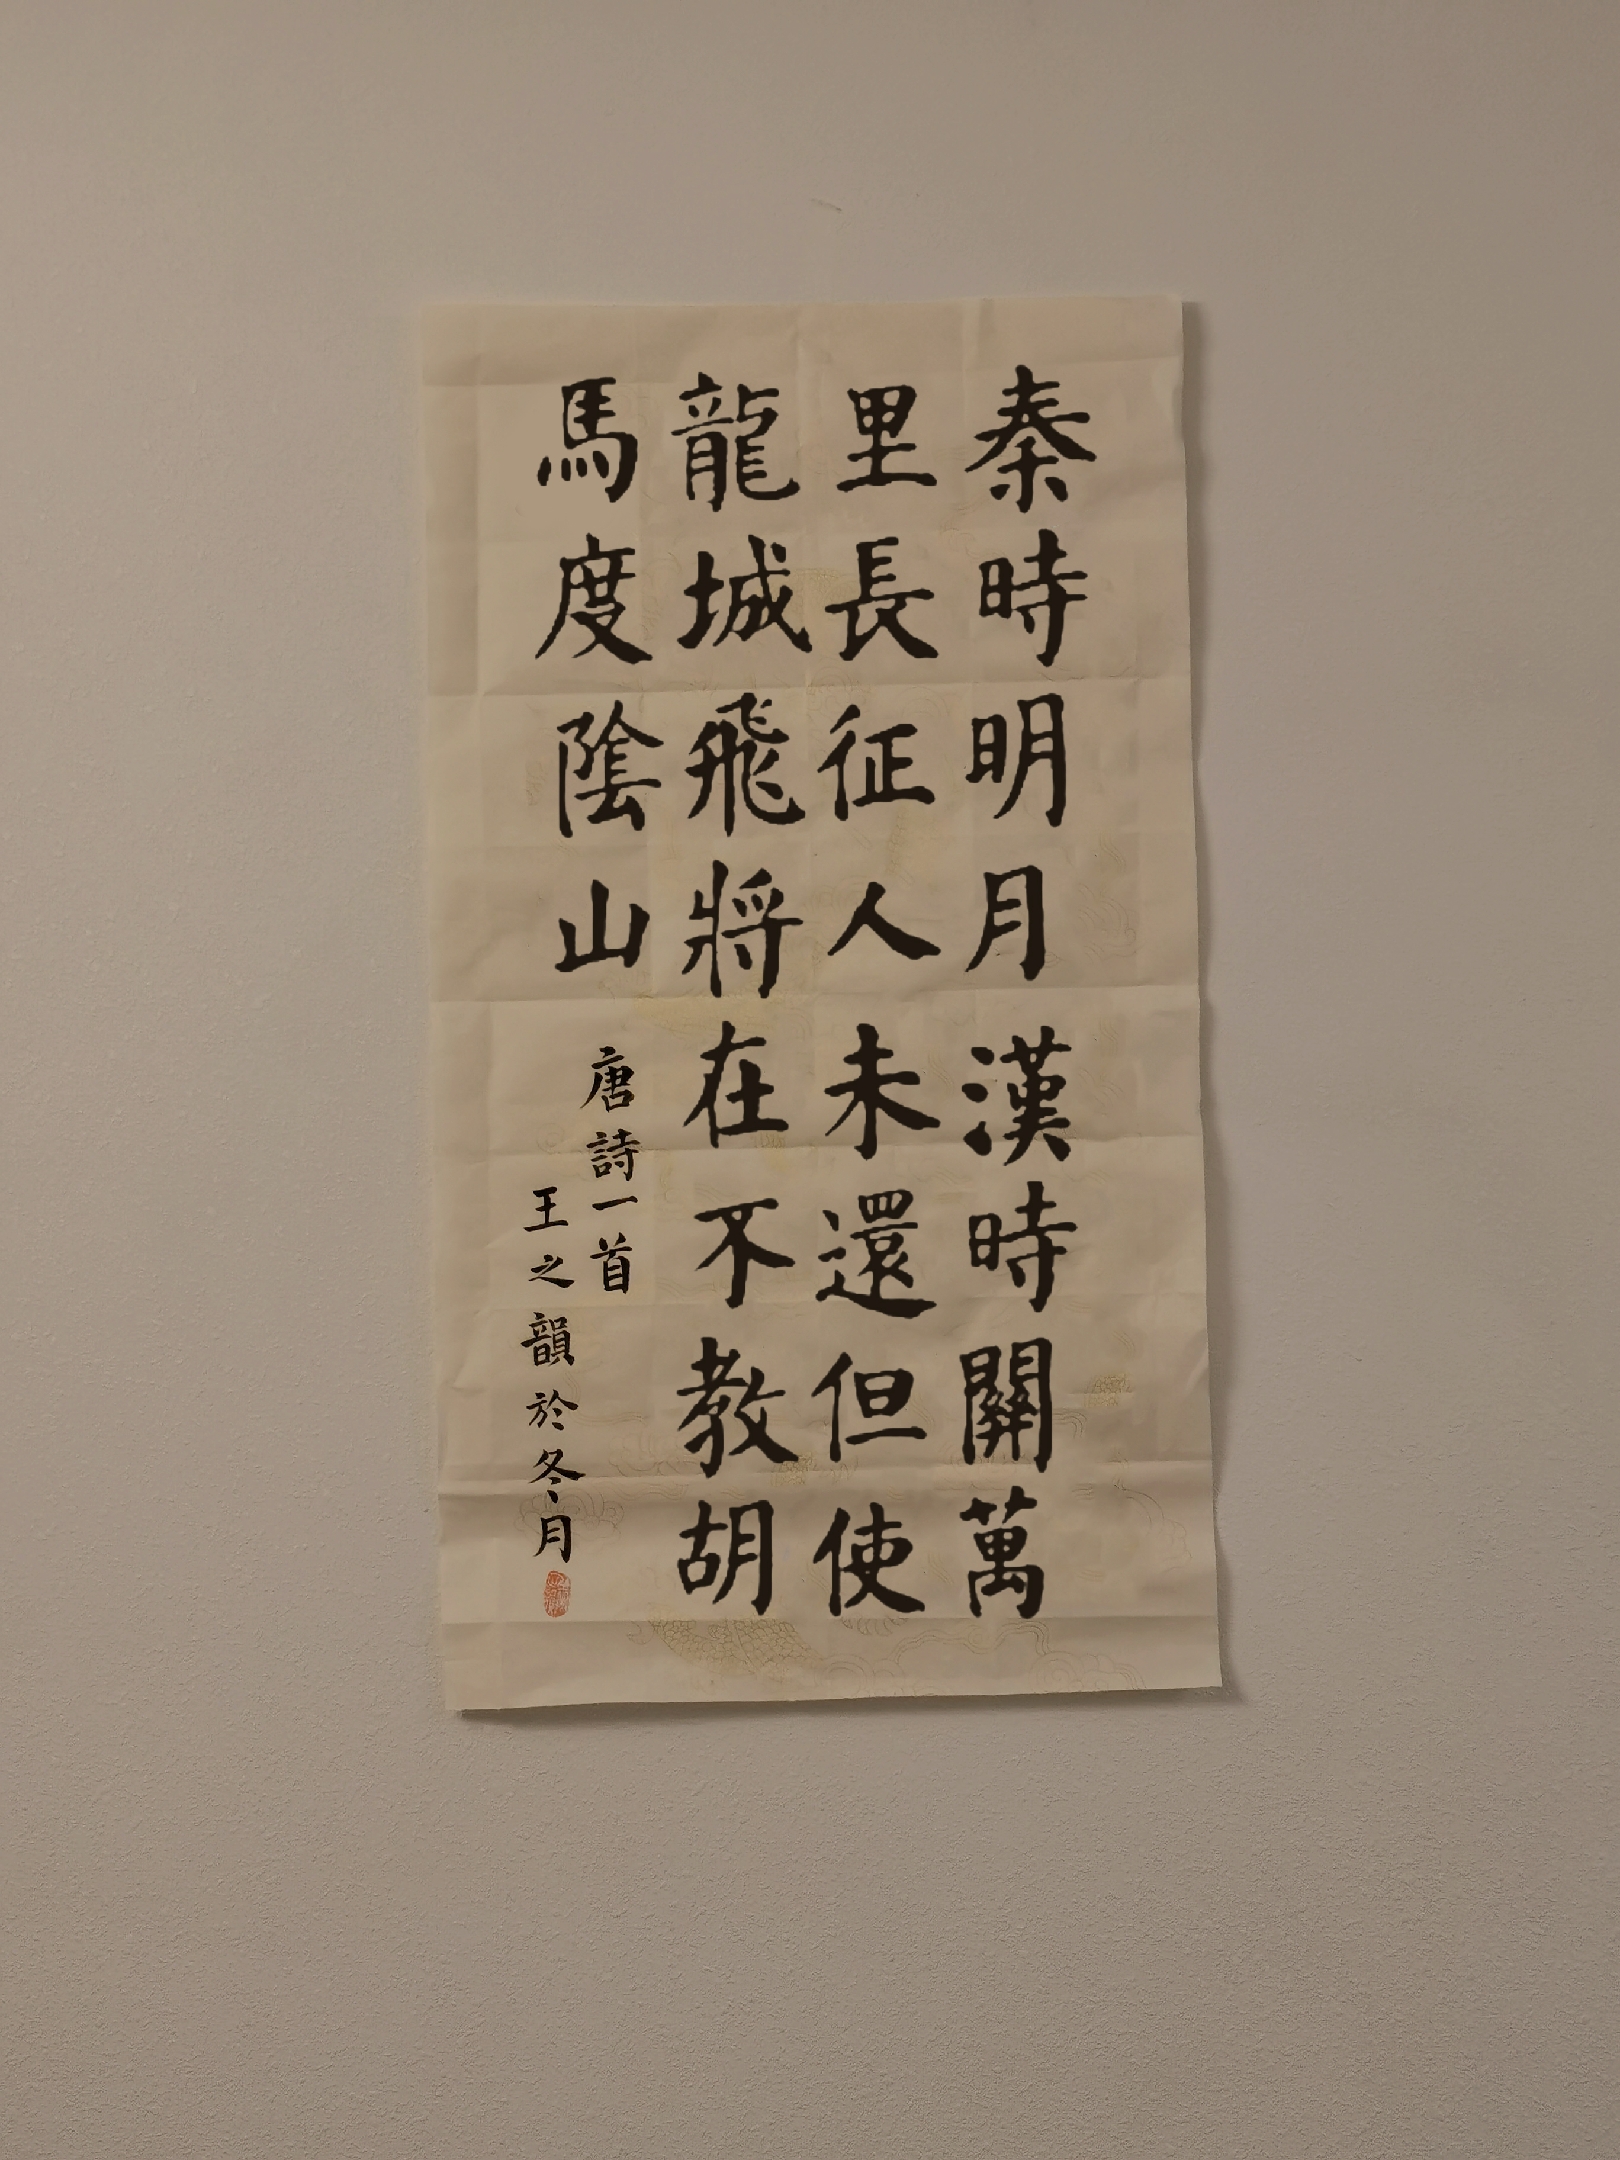 秦時明月漢時關萬
里長征人未還但使
龍城飛將在不教胡
馬度陰山
唐詩一首
王之韻於冬月